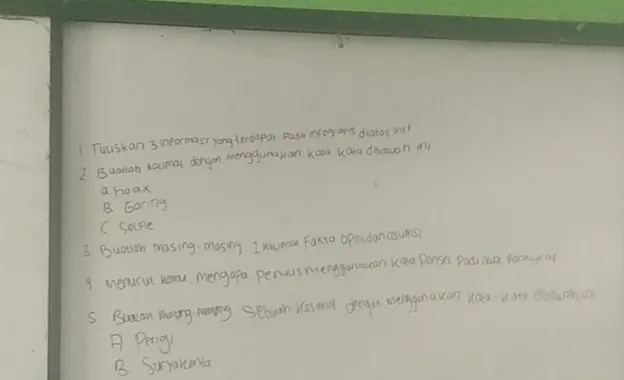 1 Tuliskan 3 informasi yang terdapat pada infografis diatas ini!
2. Buatlah kalimat dengan menggunakan kata kata dibawah ini
a hoax
B Garing
C Selfie
3 Buatlah masing-masing 1 kalimat Fakta opini dan asumsi
4 Menurut kamu, mengapa penulis menggunakan kata ponsel pada
5 Buatlah masing-masing sebuah kalimat dengan menggunakan kata-kata
A Perigi
B Suryakanta